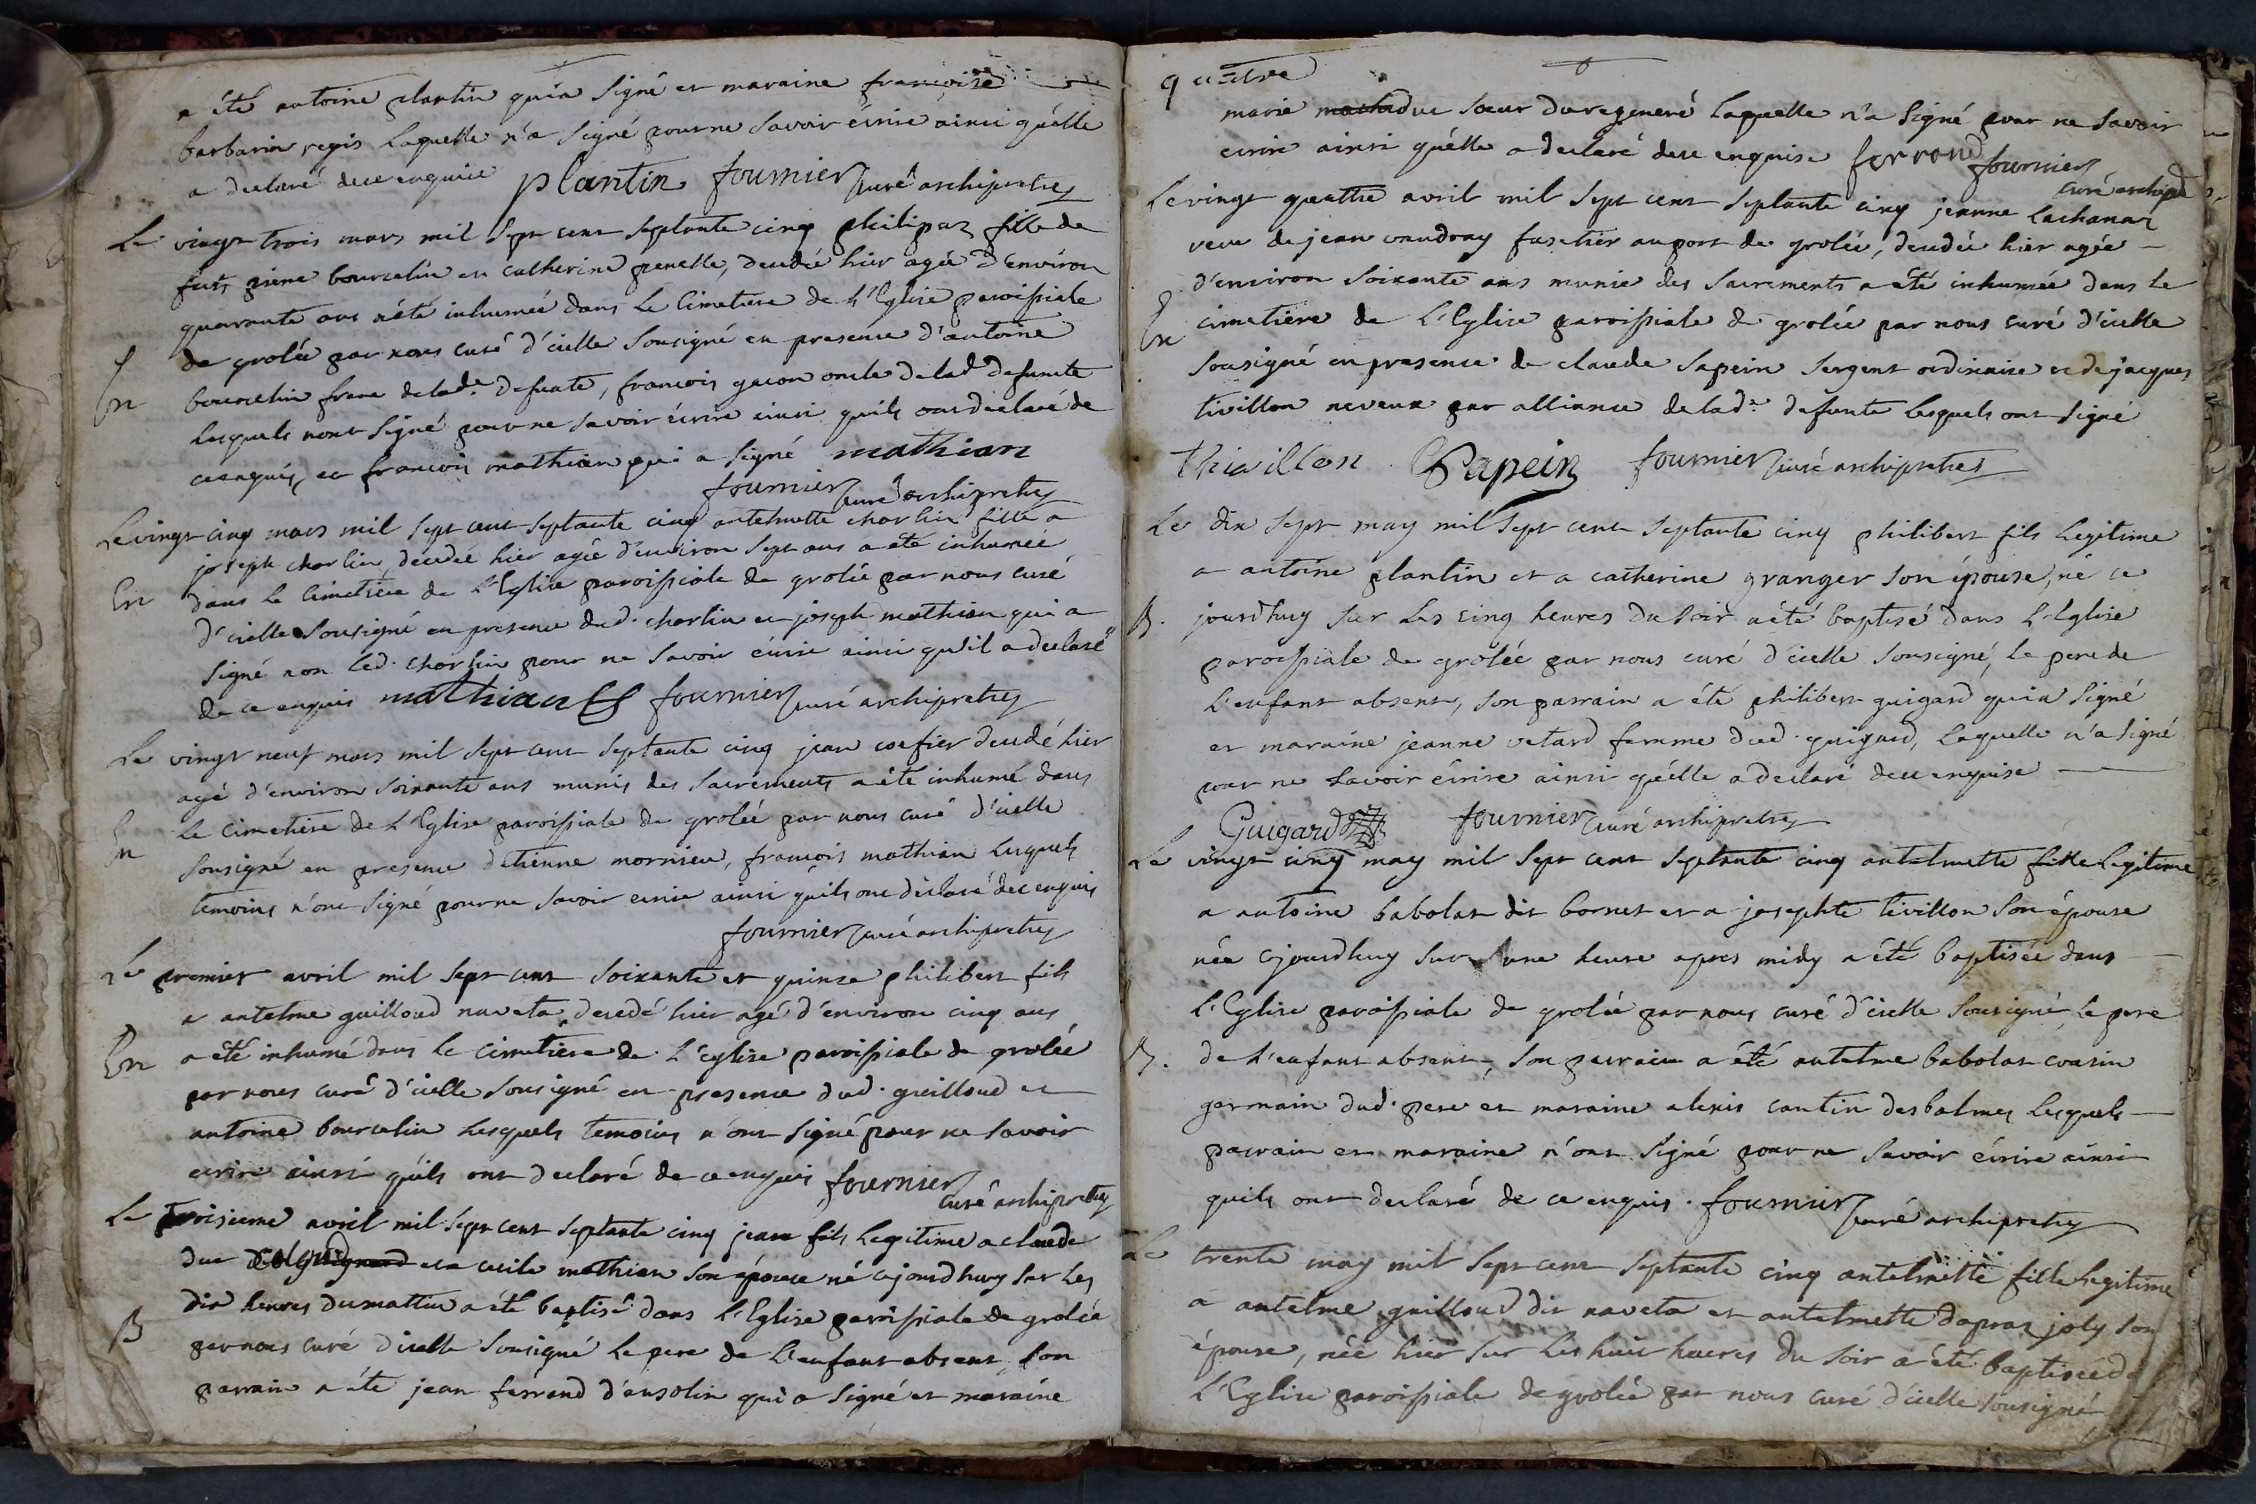 a été antoine plantin qui a signé et maraine francoise
barbarin regis laquelle n'a signé pour ne savoir écrire ainsi qu'elle
a declaré de ce enquise plantin fournier curé archipretre
Le vingt trois mars mil sept cent septante cinq philipaz fille de
feu pierre bourcelin et catherine penelle, decedée hier agée d'environ
quarante ans a été inhumée dans le Cimetiere de l'Eglise paroissiale
de grolée par nous curé d'icelle sousigné en presence d'antoine
En bourcelin frere de lad.e defunte, francois gacon oncle de lad. defuncte
lesquels n'ont signé pour ne savoir écrire ainsi quils ont declaré de
ce enquis, et francois mathian qui a signé mathian
fournier curé archipretre
Le vingt cinq mars mil sept cent septante cinq antelmette charlin fille a
joseph charlin, decedée hier agée d'environ sept ans a été inhumée
En dans le Cimetiere de l'Eglise paroissiale de grolée par nous curé
d'icelle sousigné en presence dud. charlin et joseph mathian qui a
signé non led. charlin pour ne savoir écrire ainsi qu'il a declaré
de ce enquis mathian fournier curé archipretre
Le vingt neuf mars mil sept cent septante cinq jean coefier decedé hier
agé d'environ soixante ans munis des sacrements a été inhumé dans
En le Cimetiere de l'Eglise paroissiale de grolée par nous curé d'icelle
sousigné en presence d'etienne mornieu, francois mathian lesquels
temoins n'ont signé pour ne savoir ecrire ainsi quils ont declaré de ce enquis
fournier curé archipretre
Le premier avril mil sept cent soixante et quinze philibert fils
a antelme guilloud naveta decedé hier agé d'environ cinq ans
En a été inhumé dans le Cimetière de l'église paroissiale de grolée
par nous curé d'icelle sousigné en presence dud. guilloud et
antoine bourcelin lesquels temoins n'ont signé pour ne savoir
ecrire ainsi quils ont declaré de ce enquis fournier
curé archipretre
Le troisieme avril mil sept cent septante cinq jean fils legitime a claude
duc et a cecile mathian son épouse né cejourdhuy sur les
dix heures du mattin a été baptisé dans l'Eglise paroissiale de grolée
B par nous curé d'icelle sousigné le pere de l'enfant absent, son
parrain a été jean ferrand d'ansolin qui a signé et maraine
quattre
marie duc soeur du regeneré laquelle n'a signé pour ne savoir
ecrire ainsi qu'elle a declaré de ce enquise ferrond fournier
curé archip.
Le vingt quattre avril mil sept cent septante cinq jeanne Lachanaz
veuve de jean vaudray fusetier au port de grolée, decedée hier agée
d'environ soixante ans munie des sacrements a été inhumée dans le
En cimetière de l'Eglise paroissiale de grolée par nous curé d'icelle
sousigné en presence de claude sapein sergent ordinaire et de jacques
tivillon neveux par alliance de lad.e defunte lesquels ont signé
thivillon Sapein fournier curé archipretre
Le dix sept may mil sept cent septante cinq philibert fils legitime
a antoine plantin et a catherine granger son épouse, né ce
B. jourdhuy sur les cinq heures du soir a été baptisé dans l'Eglise
paroissiale de grolée par nous curé d'icelle sousigné, le pere de
l'enfant absent, son parrain a été philibert guigard qui a signé
et maraine jeanne vetard femme dud. guigard, laquelle n'a signé
pour ne savoir écrire ainsi qu'elle a declaré de ce enquise
Guigard fournier curé archipretre
Le vingt cinq may mil sept cent septante cinq antelmette fille legitime
a antoine babolat dit bornet et a josephte tivillon son épouse
née cejourdhuy sur une heure apres midy a été baptisée dans
l'Eglise paroissiale de grolée par nous curé d'icelle sousigné, le pere
B. de l'enfant absent, son parrain a été antelme babolat cousin
germain dud. pere et maraine alexis cantin desbalmes lesquels
parrain et maraine n'ont signé pour ne savoir écrire ainsi
quils ont declaré de ce enquis. fournier curé archipretre
Le trente may mil sept cent septante cinq antelmette fille legitime
a antelme guilloud dit naveta et antelmette dapraz joly son
épouse, née hier sur les huit heures du soir a été baptisée d
l'Eglise paroissiale de grolée par nous curé d'icelle sousigné,